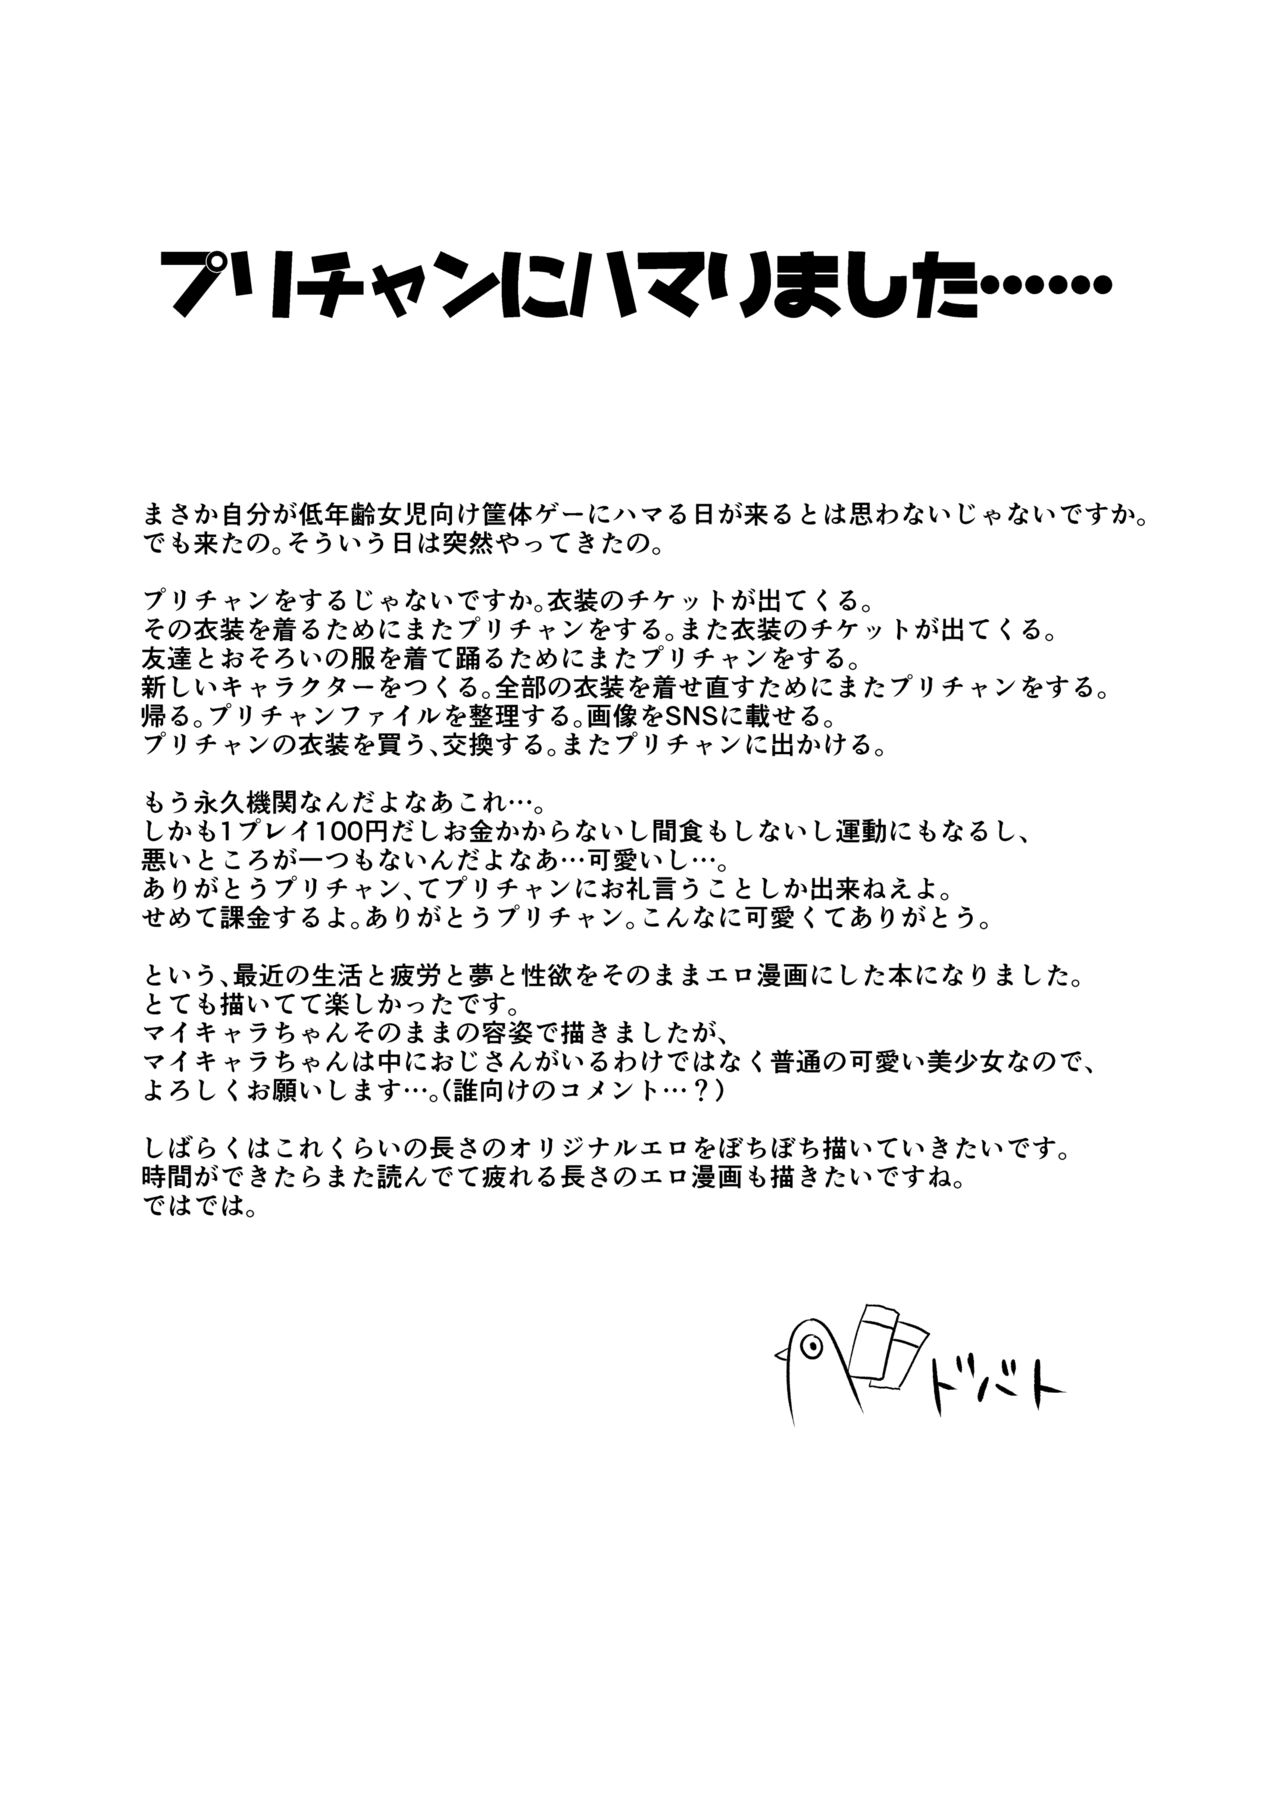 プリチャンにハマりました……
まさか自分が低年齢女児向け筐体ゲーにハマる日が来るとは思わないじゃないですか。
でも来たの。そういう日は突然やってきたの。
プリチャンをするじゃないですか。衣装のチケットが出てくる。
その衣装を着るためにまたプリチャンをする。また衣装のチケットが出てくる。
友達とおそろいの服を着て踊るためにまたプリチャンをする。
新しいキャラクターをつくる。全部の衣装を着せ直すためにまたプリチャンをする。
帰る。プリチャンファイルを整理する。画像をSNSに載せる。
プリチャンの衣装を買う、交換する。またプリチャンに出かける。
もう永久機関なんだよなあこれ…。
しかも1プレイ100円だしお金かからないし間食もしないし運動にもなるし、
悪いところが一つもないんだよなあ…可愛いし…。
ありがとうプリチャン、てプリチャンにお礼言うことしか出来ねえよ。
せめて課金するよ。ありがとうプリチャン。こんなに可愛くてありがとう。
という、最近の生活と疲労と夢と性欲をそのままエロ漫画にした本になりました。
とても描いてて楽しかったです。
マイキャラちゃんそのままの容姿で描きましたが、
マイキャラちゃんは中におじさんがいるわけではなく普通の可愛い美少女なので、
よろしくお願いします…。(誰向けのコメント…？)
しばらくはこれくらいの長さのオリジナルエロをぼちぼち描いていきたいです。
時間ができたらまた読んでて疲れる長さのエロ漫画も描きたいですね。
ではでは。
ドバト